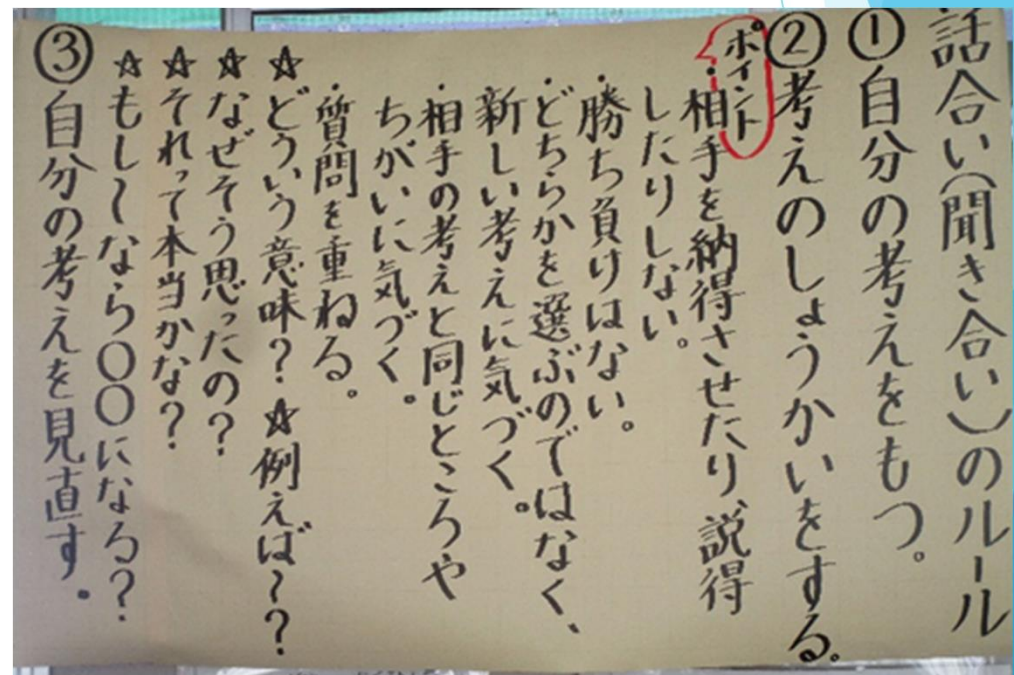 話合い(聞き合い)のルール
①自分の考えをもつ。
②考えのしょうかいをする。
ポイント
・相手を納得させたり、説得
したりしない。
・勝ち負けはない。
・どちらかを選ぶのではなく、
新しい考えに気づく。
・相手の考えと同じところや
ちがいに気づく。
・質問を重ねる。
☆どういう意味？☆例えば～？
☆なぜそう思ったの？
☆それって本当かな？
☆もし～なら〇〇になる？
③自分の考えを見直す。